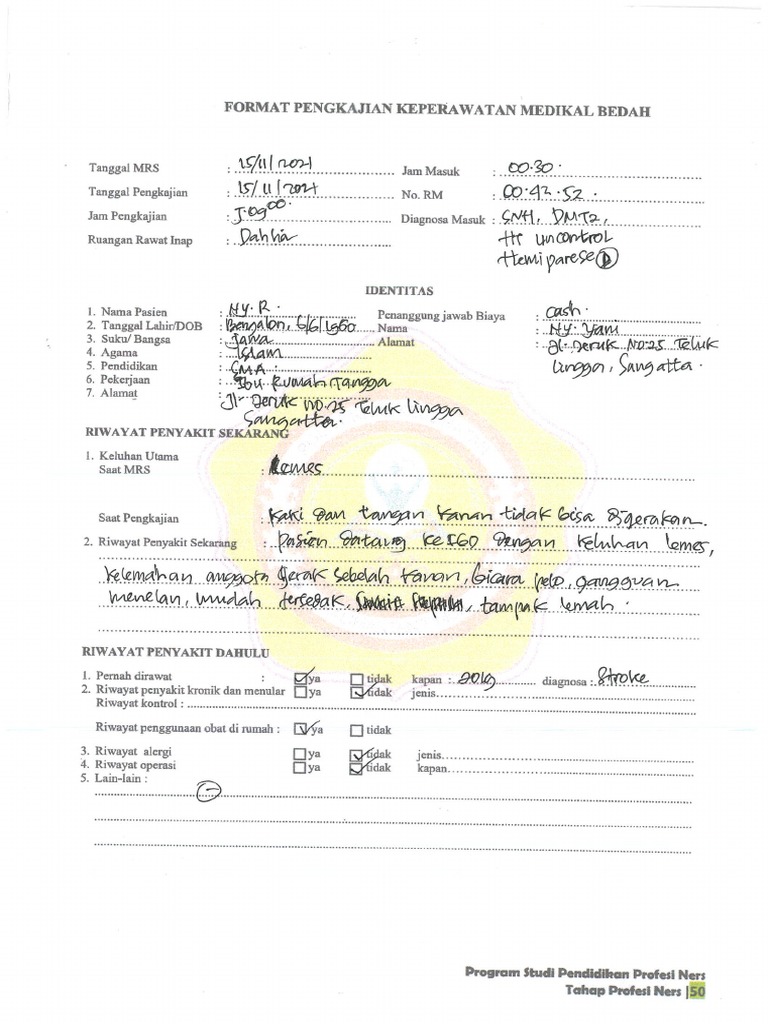 FORMAT PENGKAJIAN KEPERAWATAN MEDIKAL BEDAH
Tanggal MRS : 15/11/2021 Jam Masuk : 00.30.
Tanggal Pengkajian : 15/11/2021 No. RM : 00.42.52.
Jam Pengkajian : J.09 00. Diagnosa Masuk : SNH, DMT2,
Ruangan Rawat Inap : Dahlia HT uncontrol
Hemiparese (D)
IDENTITAS
1. Nama Pasien : NY. R. Penanggung jawab Biaya : cash.
2. Tanggal Lahir/DOB : Bengalon, 6/6/1960 Nama : NY. Yani
3. Suku/ Bangsa : Jawa Alamat : Jl. Jeruk No.25 Teluk
4. Agama : Islam Lingga, Sangatta.
5. Pendidikan : SMA.
6. Pekerjaan : Ibu Rumah Tangga
7. Alamat : Jl. Jeruk no.25 Teluk Lingga
Sangatta.
RIWAYAT PENYAKIT SEKARANG
1. Keluhan Utama
Saat MRS : Lemes
Saat Pengkajian : Kaki dan tangan kanan tidak bisa digerakan.
2. Riwayat Penyakit Sekarang : Pasien datang ke IGD dengan keluhan lemes,
kelemahan anggota gerak sebelah kanan, bicara pelo, gangguan
menelan, mudah tersedak, tampak lemah.
RIWAYAT PENYAKIT DAHULU
1. Pernah dirawat : ☑ ya ☐ tidak kapan : 2019 diagnosa : Stroke
2. Riwayat penyakit kronik dan menular ☐ ya ☑ tidak jenis
Riwayat kontrol :
Riwayat penggunaan obat di rumah : ☑ ya ☐ tidak
3. Riwayat alergi ☐ ya ☑ tidak jenis
4. Riwayat operasi ☐ ya ☑ tidak kapan
5. Lain-lain :
(-)
Program Studi Pendidikan Profesi Ners
Tahap Profesi Ners |50